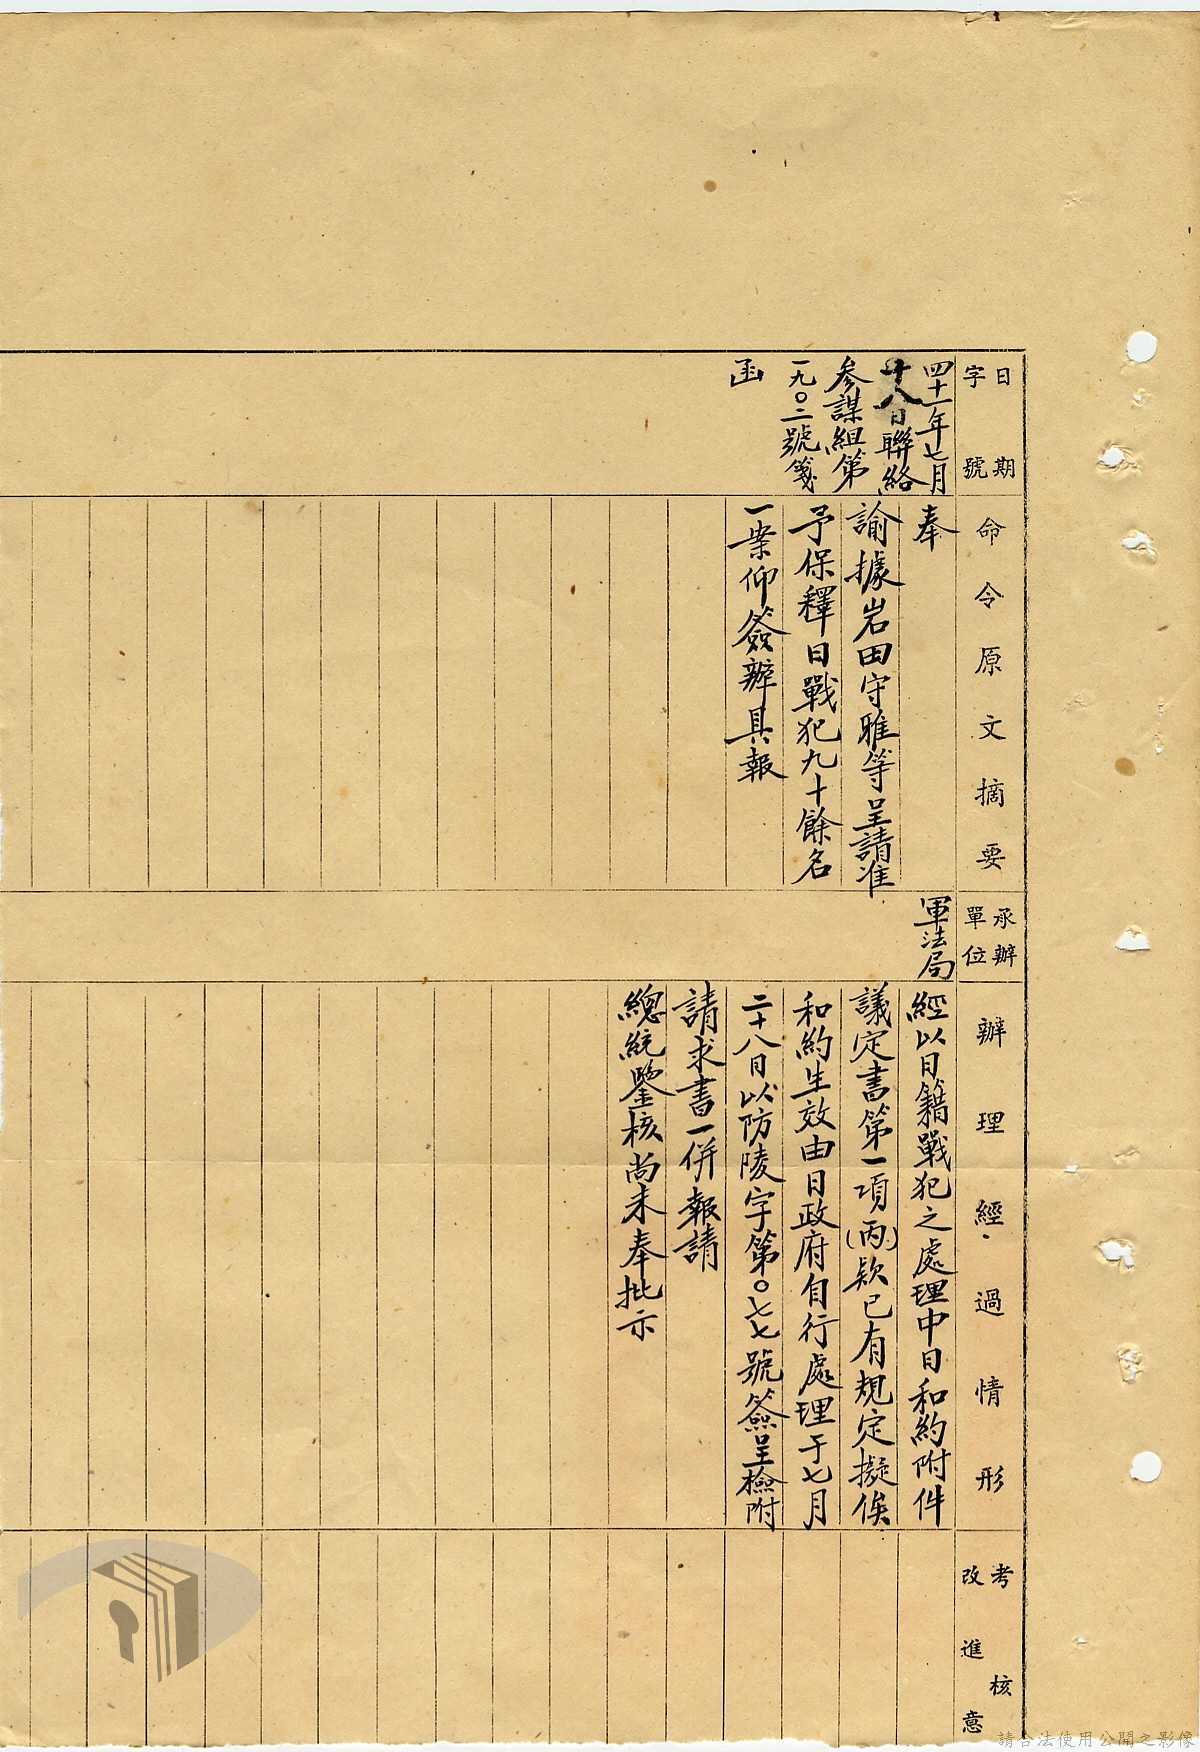 日期
字號
四十一年七月
十八日聯絡
參謀組第
一九〇二號箋
函
命令原文摘要
奉
諭據岩田守雅等呈請准
予保釋日戰犯九十餘名
一案仰簽辦具報
承辦
單位
軍法局
辦理經過情形
經以日籍戰犯之處理中日和約附件
議定書第一項(丙)款已有規定擬俟
和約生效由日政府自行處理于七月
二十八日以防陵字第〇七七號簽呈檢附
請求書一併報請
總統鑒核尚未奉批示
考核
改進意
請合法使用公開之影像